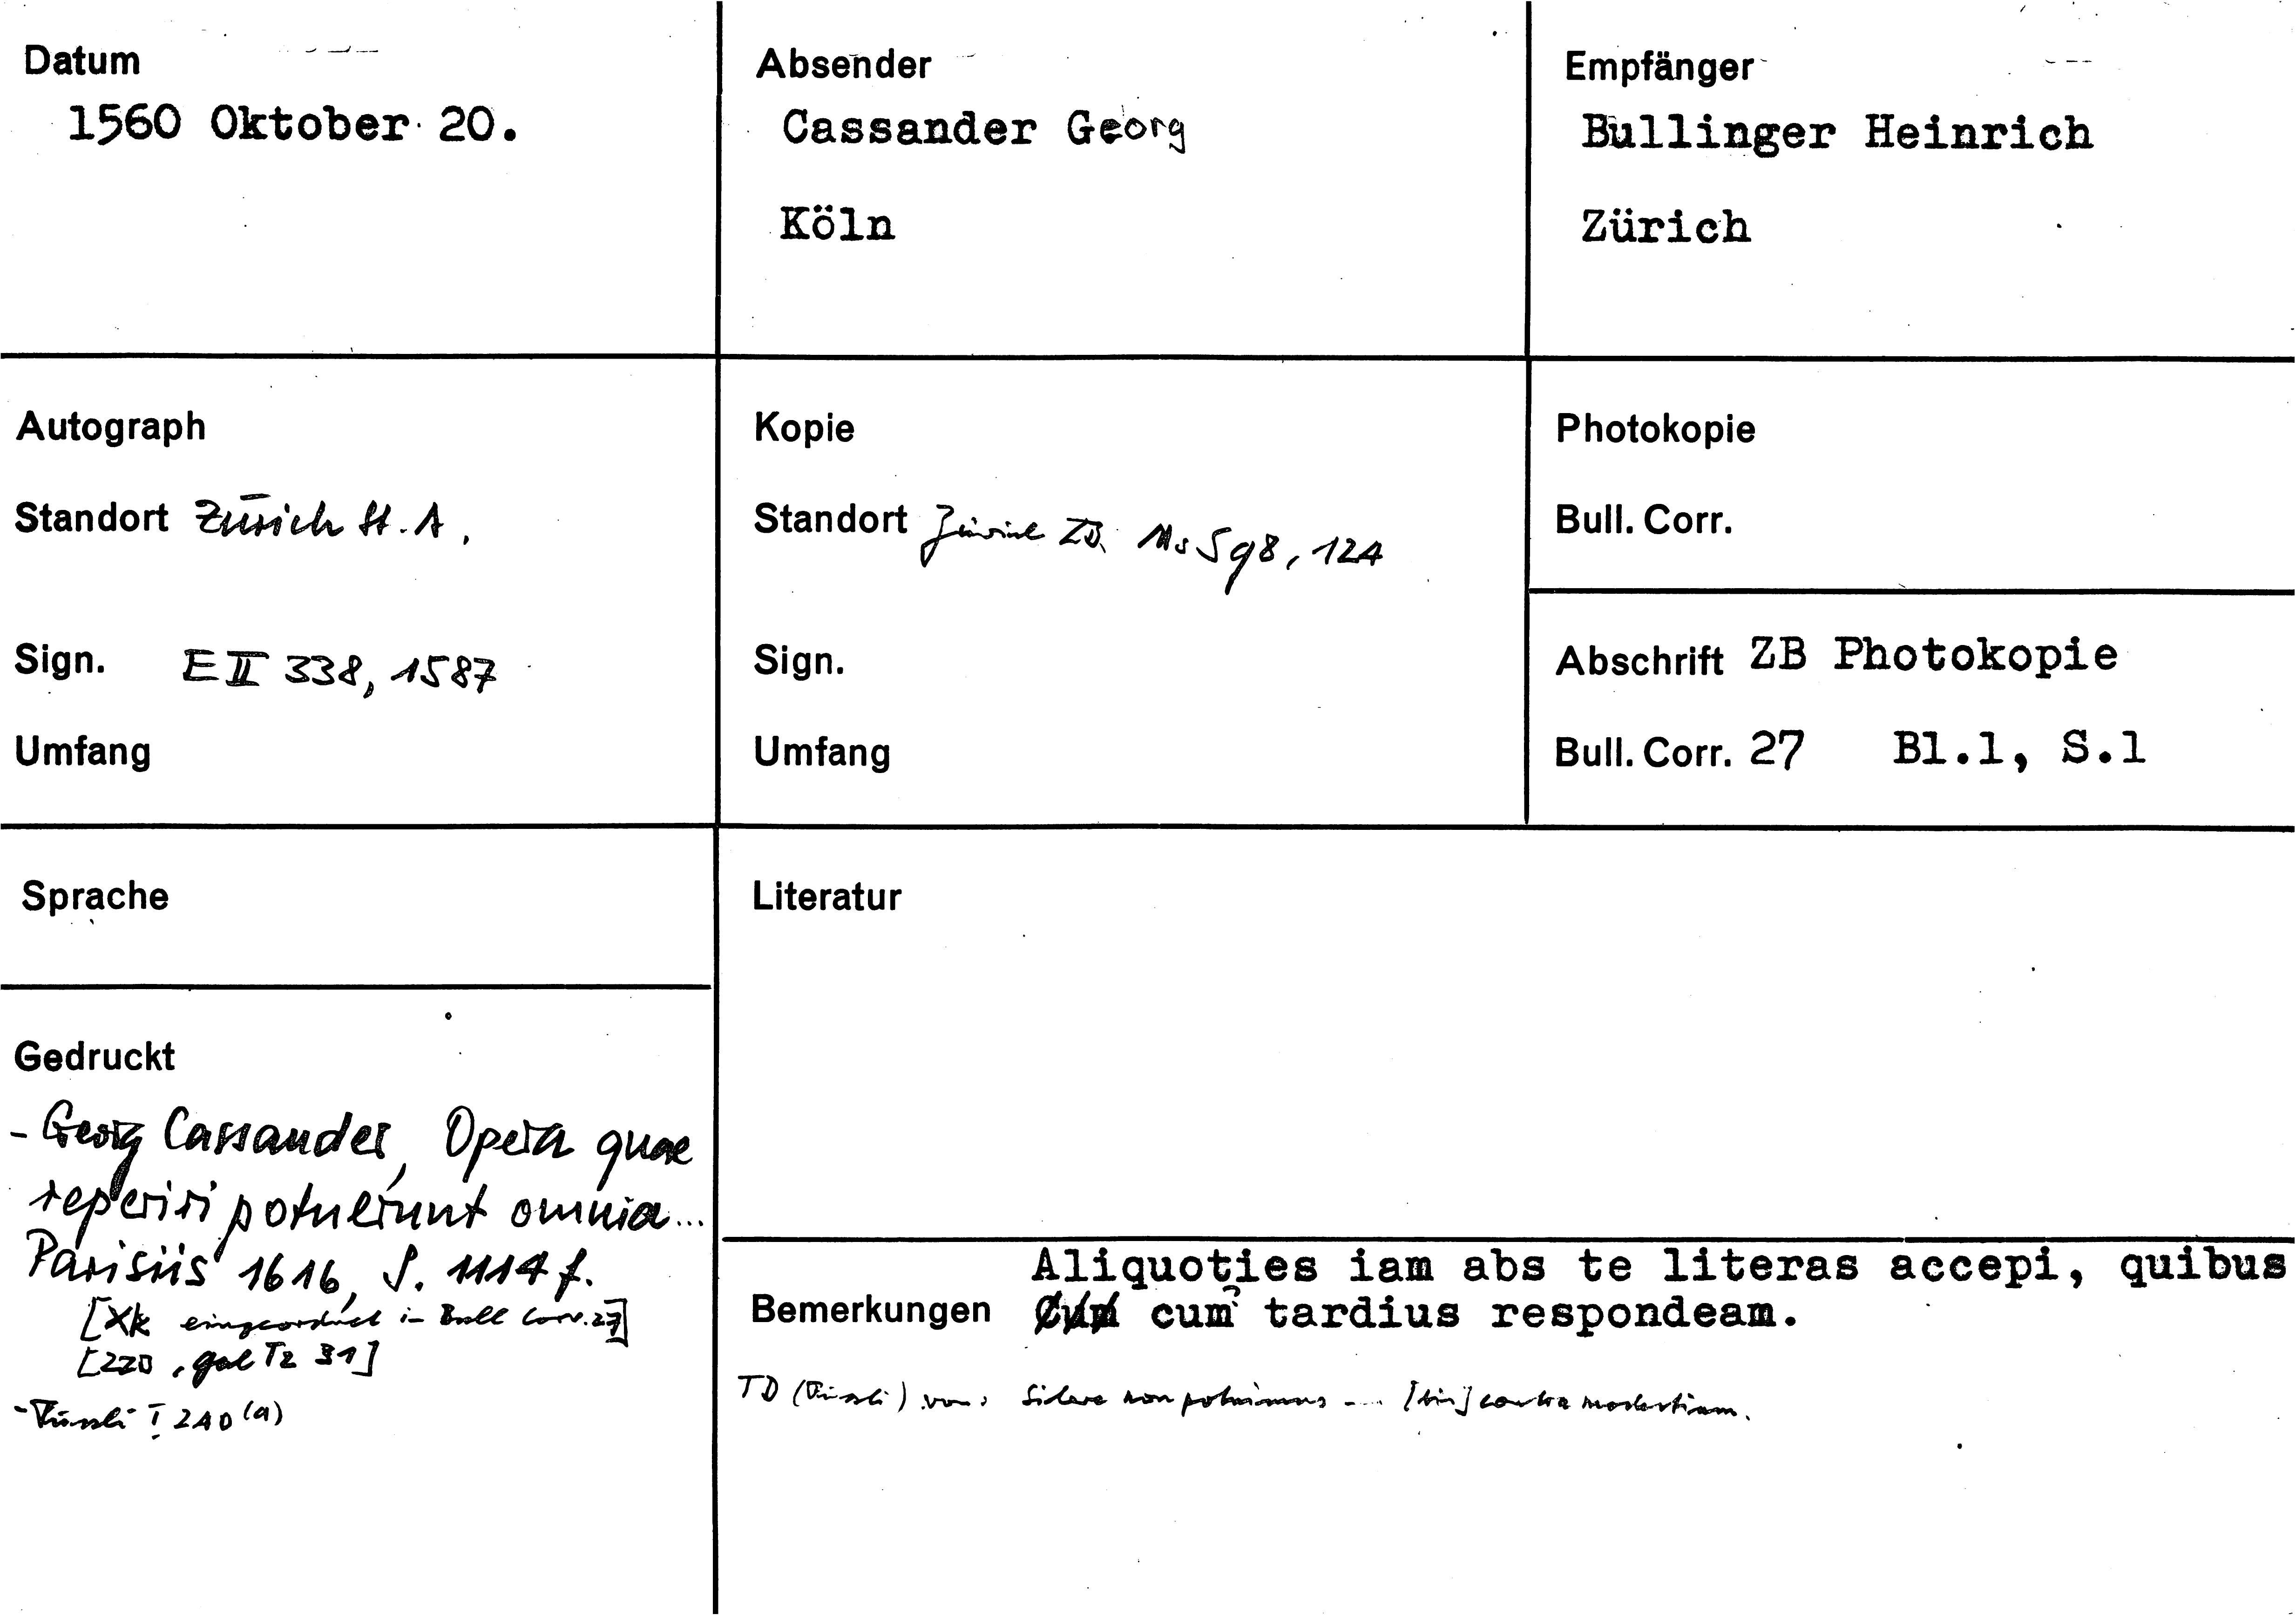 Datum
1560 Oktober 20.
Absender
Cassander Georg
Köln
Empfänger
Bullinger Heinrich
Zürich
Autograph
Standort Zürich St.A.
Sign. E II 338, 1587
Umfang
Kopie
Standort Zürich ZB. Ms S 98, 124
Sign.
Umfang
Photokopie
Bull. Corr.
Abschrift ZB Photokopie
Bull. Corr. 27 Bl.1, S.1
Sprache
Gedruckt
- Georg Cassander, Opera quae
reperiri potuerunt omnia...
Parisiis 1616, S. 1114 f.
[Xk eingeordnet in Bull Corr. 27]
[ZZB, Gal Tz 31]
- Füssli I 240 (a)
Literatur
Bemerkungen
Aliquoties iam abs te literas accepi, quibus
Cum cum? tardius respondeam.
TD (Füssli) von: non potuimus ... [bis] contra modestiam.